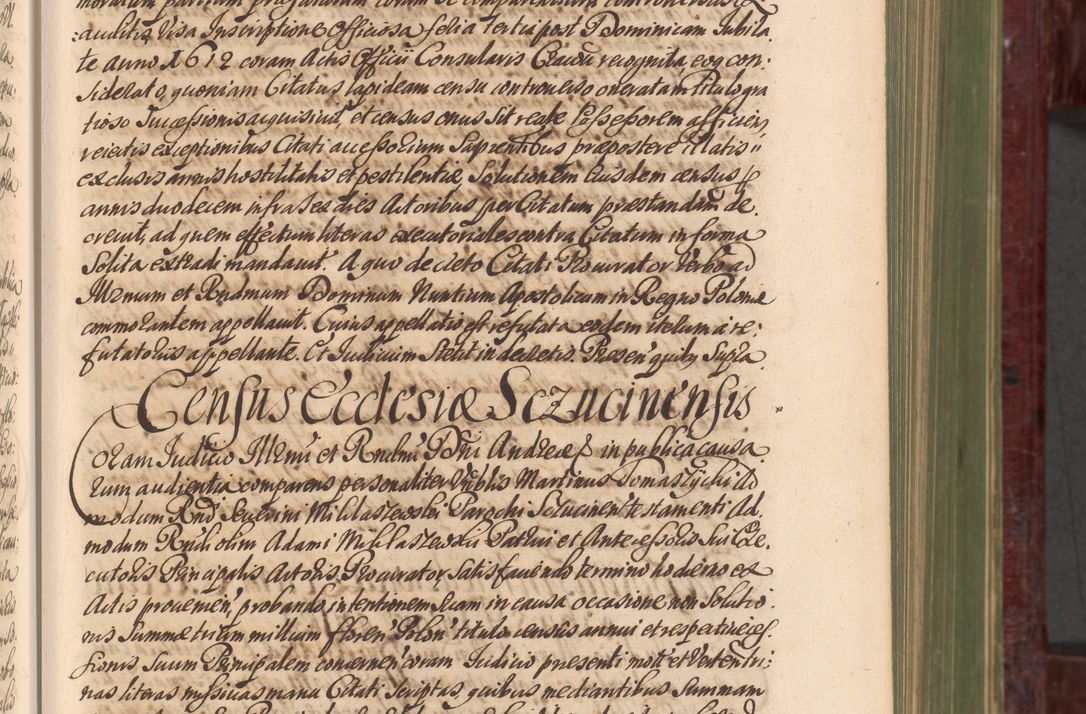 auditis, Visa Inscriptione Officiosa feria tertia post Dominicam Jubila,
te anno 1612 coram Actis Officii Consularis Cracou recognita, eoq con:
siderato, quoniam Citatus lapideam censu controuerso oneratam titulo gra
tioso Successionis acquisiuit, et census onus sit reale possessorem afficiens,
reiectis exceptionibus Citati accessorium sapientibus præpostere illatis
exclusis annis hostilitatis et pestilentiæ Solutionem Eiusdem census p
annis duodecem infra sex dies Actoribus per Citatum præstandam de,
creuit, ad quem effectum literas executoriales contra Citatum in forma
Solita extradi mandauit. A quo decreto Citati Procurator Verbo ad
Illrmum et Rndmum Dominum Nuntium Apostolicum in Regno Poloniæ
commorantem appellauit. Cuius appellatio est refutata eodem iterum a re:
futatoriis appellante. Et Iudicium Stetit in decretis. Presen' quibq Supra
Census Ecclesiæ Sczucinensis
Coram Iudicio Illrmi et Rndmi Dni Andreæ in publica causa
rum audientia comparens personaliter Nblis Martinus Tomaszycki Ad
modum Rnd Seuerini Miklaszewski Parochi Sczucinen' testamenti Ad,
modum Rndi olim Adami Miklaszewski Patrui et Antecessoris sui Exe,
cutoris Principalis Actoris Procurator, satisfaciendo termino hodierno ex
Actis prouenien', probando intentionem suam in causa occasione non Solutio
nis Summæ trium millium floren' Polon' titulo census annui et respectiue ces
sionis Suum Principalem concernen' coram Iudicio præsenti mott' et Vertentri;
nas literas missiuas manu Citati scriptas, quibus mediantibus Summam